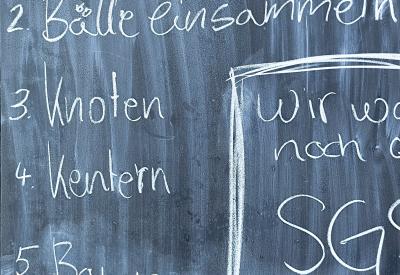 2. Bälle einsammeln
3. Knoten
4. Kentern
5.
Wir
noch
SGS